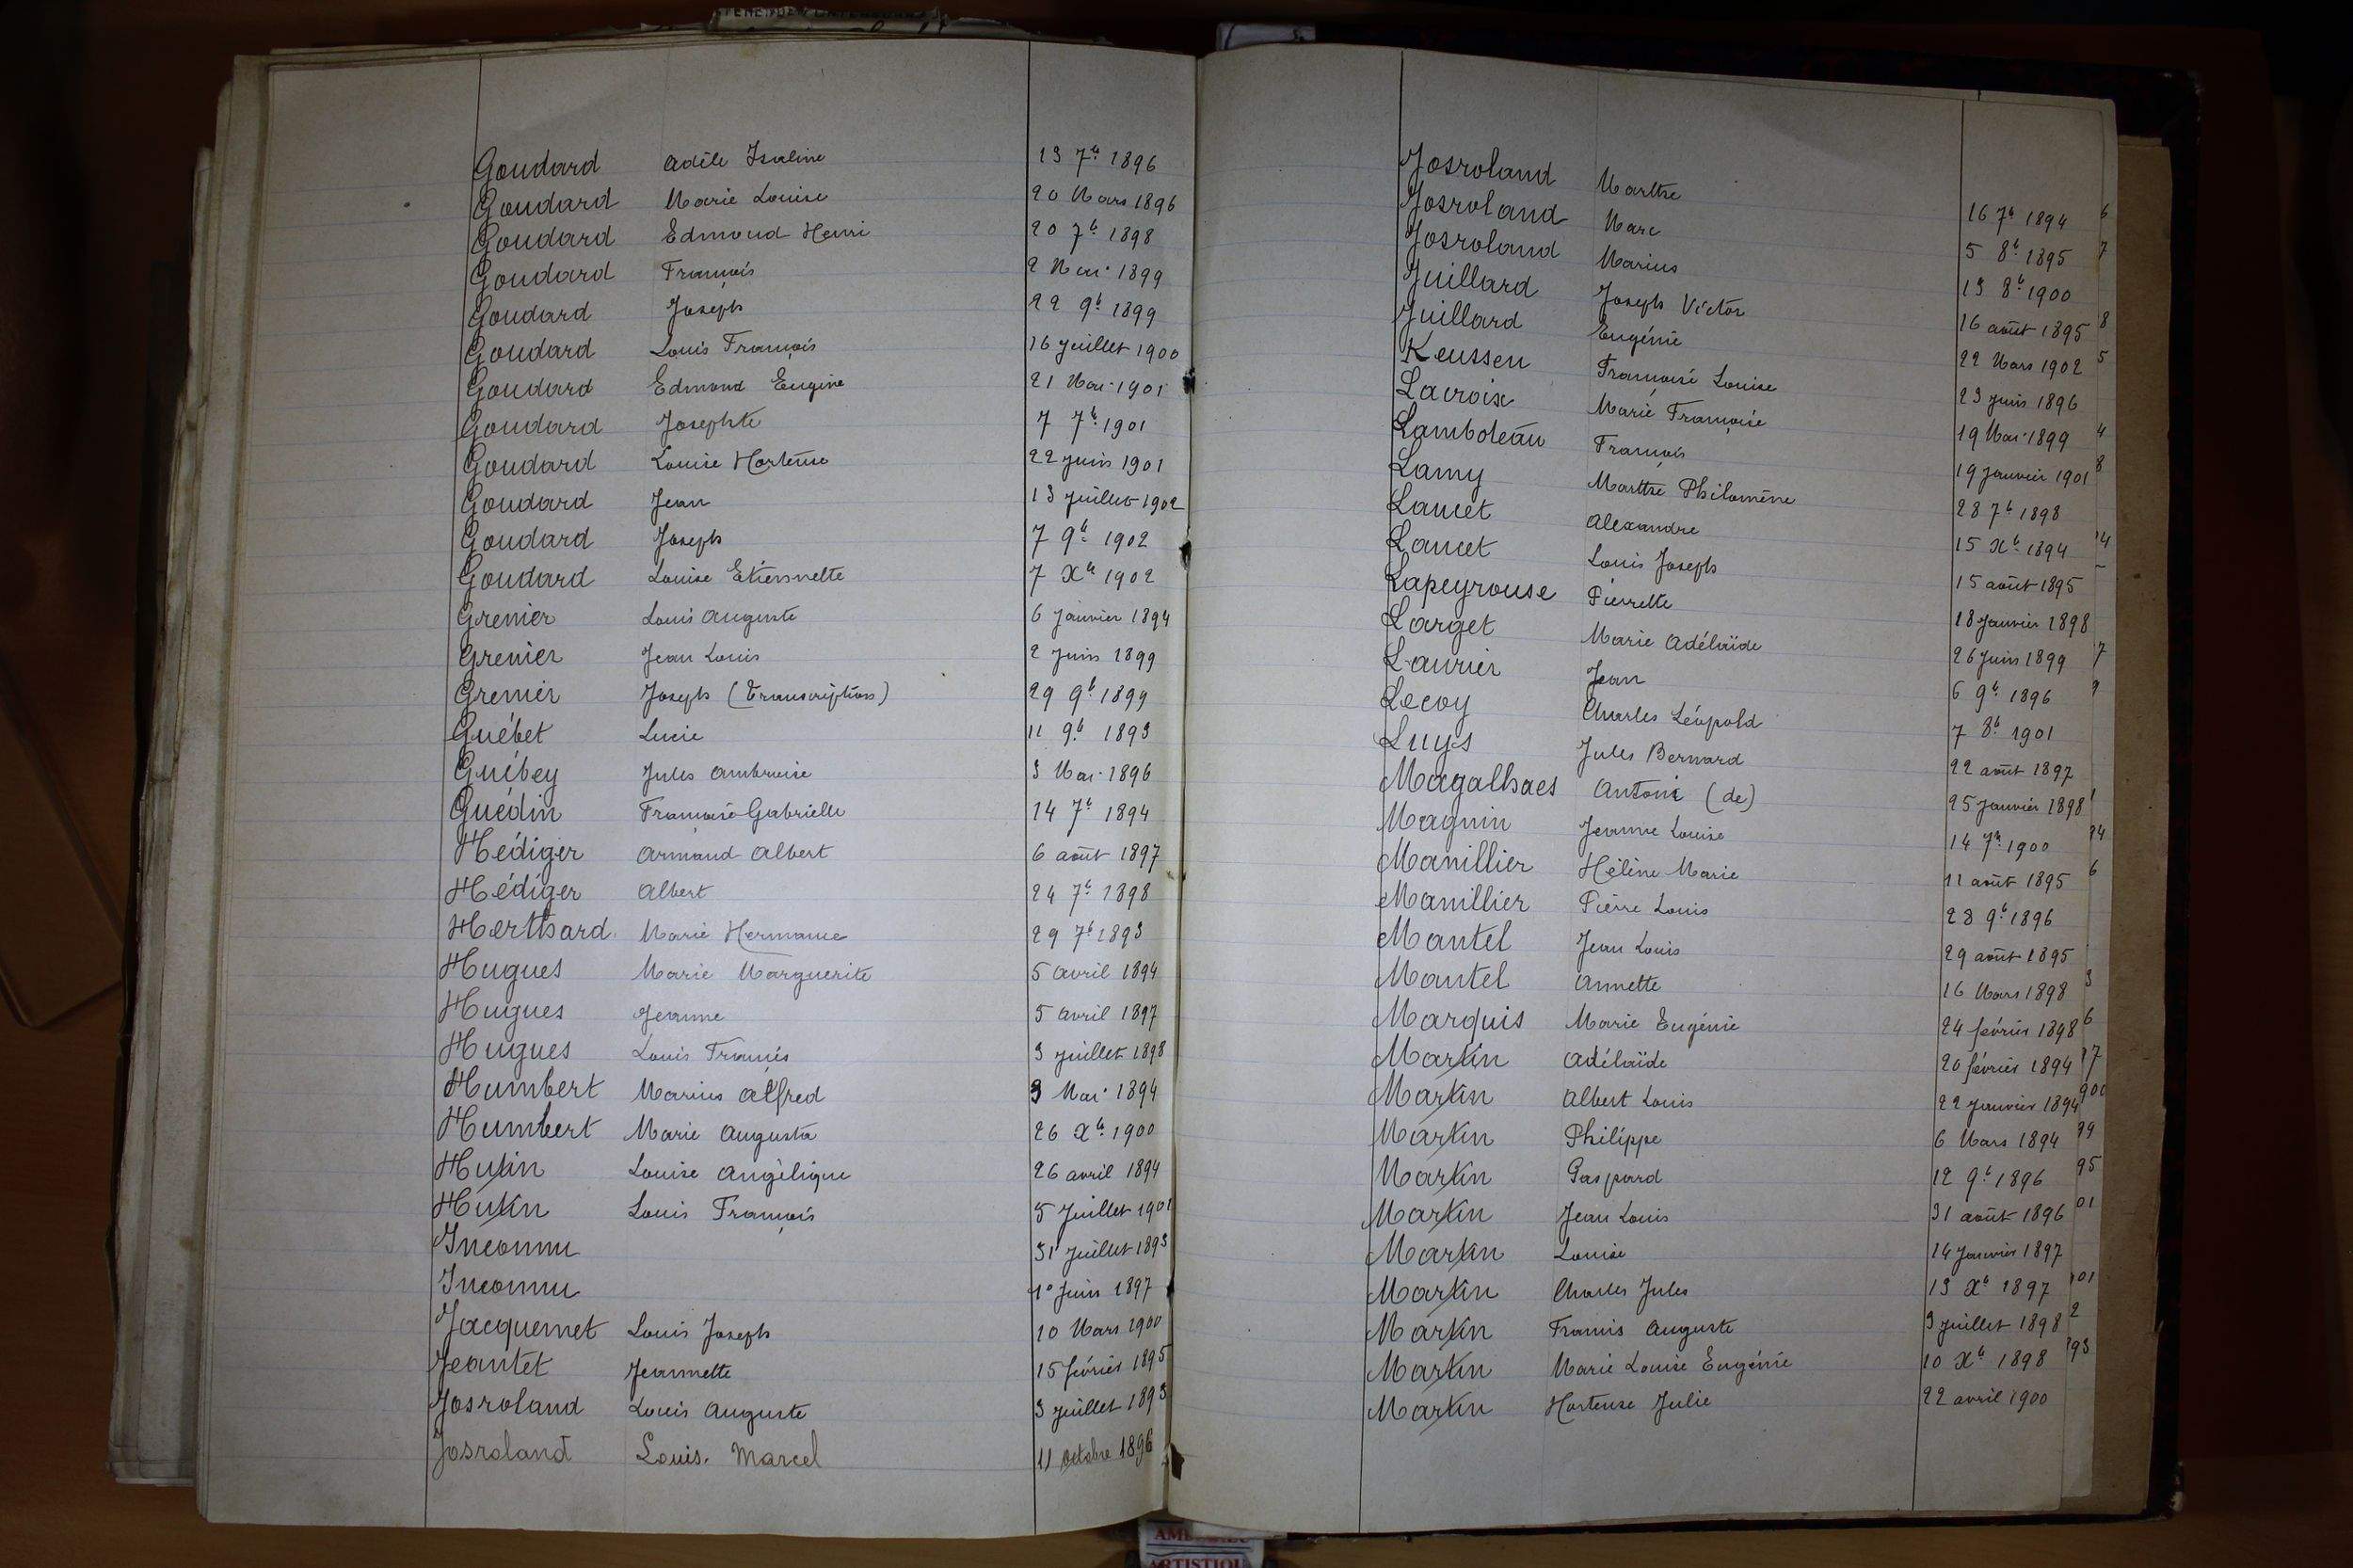 Goudard Adèle Isaline 13 7b 1896
Goudard Marie Louise 20 Mars 1896
Goudard Edmond Henri 20 7b 1898
Goudard François 2 Mai 1899
Goudard Joseph 22 9b 1899
Goudard Louis François 16 Juillet 1900
Goudard Edmond Eugène 21 Mai 1901
Goudard Josephte 7 7b 1901
Goudard Louise Hortense 22 Juin 1901
Goudard Jean 13 Juillet 1902
Goudard Joseph 7 9b 1902
Goudard Louise Etiennette 7 Xb 1902
Grenier Louis Auguste 6 Janvier 1894
Grenier Jean Louis 2 Juin 1899
Grenier Joseph (Transcription) 29 9b 1899
Guébet Lucie 11 9b 1893
Guébey Jules Ambroise 3 Mai 1896
Guédin Françoise Gabrielle 14 7b 1894
Hédiger Armand Albert 6 août 1897
Hédiger Albert 24 7b 1898
Herthard Marie Hermance 29 7b 1893
Hugues Marie Marguerite 5 Avril 1894
Hugues Jeanne 5 Avril 1897
Hugues Louis Francis 3 Juillet 1898
Humbert Marius Alfred 3 Mai 1894
Humbert Marie Augusta 26 Xb 1900
Hutin Louise Angélique 26 avril 1894
Hutin Louis François 5 Juillet 1901
Inconnu 31 Juillet 1893
Inconnu 1° Juin 1897
Jacquemet Louis Joseph 10 Mars 1900
Jeantet Jeannette 15 février 1895
Josroland Louis Auguste 3 Juillet 1893
Josroland Louis. Marcel 11 octobre 1896
Josroland Marthe 16 7b 1894
Josroland Marc 5 8b 1895
Josroland Marius 13 8b 1900
Juillard Joseph Victor 16 août 1895
Juillard Eugénie 22 Mars 1902
Keussen Françoise Louise 23 Juin 1896
Lacroix Marie Françoise 19 Mai 1899
Lamboteau François 19 Janvier 1901
Lamy Marthe Philomène 28 7b 1898
Lancet Alexandre 15 Xb 1894
Lancet Louis Joseph 15 août 1895
Lapeyrouse Pierrette 18 Janvier 1898
Larget Marie Adélaïde 26 Juin 1899
Laurier Jean 6 9b 1896
Lecoy Charles Léopold 7 8b 1901
Luys Jules Bernard 22 août 1897
Magalhaes Antoni (de) 25 Janvier 1898
Magnin Jeanne Louise 14 7b 1900
Manillier Hélène Marie 11 août 1895
Manillier Pierre Louis 28 9b 1896
Mantel Jean Louis 29 août 1895
Mantel Annette 16 Mars 1898
Marquis Marie Eugénie 24 février 1898
Martin Adélaïde 20 février 1894
Martin Albert Louis 22 Janvier 1894
Martin Philippe 6 Mars 1894
Martin Gaspard 12 9b 1896
Martin Jean Louis 31 août 1896
Martin Louise 14 Janvier 1897
Martin Charles Jules 13 Xb 1897
Martin Francis Auguste 3 Juillet 1898
Martin Marie Louise Eugénie 10 Xb 1898
Martin Hortense Julie 22 avril 1900